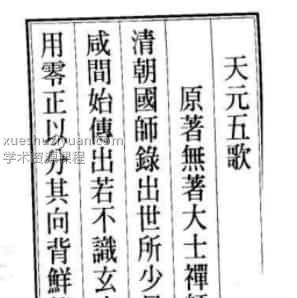 天元五歌
原著無著大士禪師
清朝國師錄出世所少
咸間始傳出若不識玄
用零正以分其向背鮮
xueshuziyuan.com
学术资源课程